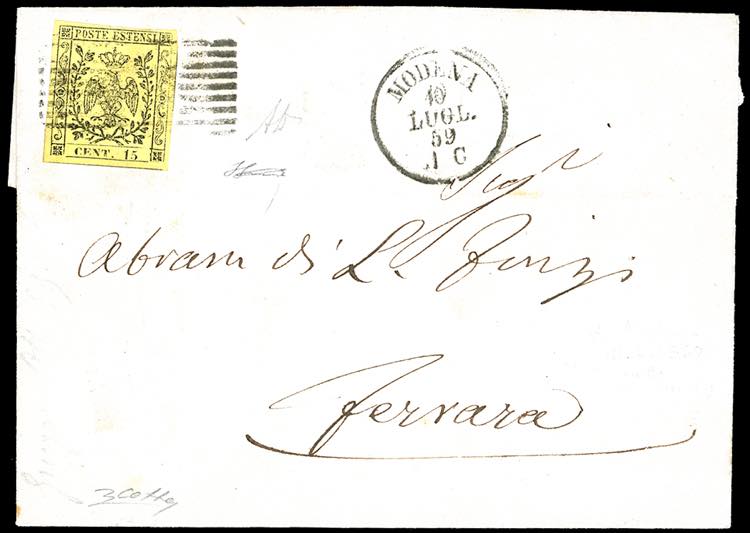 POSTE ESTENSI
CENT. 15
MODENA
10
LUGL.
59
1 C
Sigr
Abram di L. Finzi
Ferrara